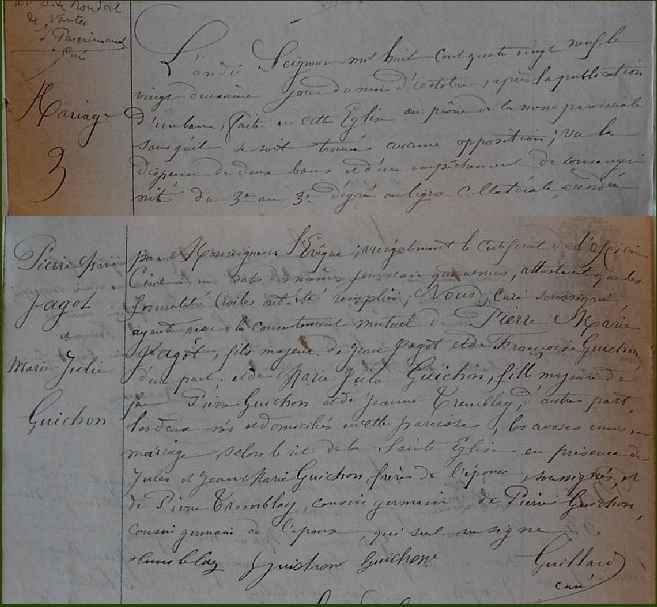 Mariage
3
L'an du Seigneur mil huit cent quatre vingt neuf, le
vingt deuxième jour du mois d'octobre, après la publication
d'un banc, faite en cette Eglise au prône de la messe paroissiale
sans qu'il se soit trouvé aucune opposition; vu la
dispense de deux bans et d'un empêchement de consangui
nité du 3e au 3e dégré en ligne collatérale, accordée
Pierre Marie
Jagot
et
Marie Julie
Guichon
par Monseigneur l'Evêque; vu également le certificat de l'officier
Civil en date attestant que les
formalités Civiles ont été remplies, Nous, curé soussigné
ayant reçu le consentement mutuel de Pierre Marie
Jagot, fils majeur de Jean Jagot et de Françoise Guichon,
d'un part; et de Marie Julie Guichon, fille majeure de
feu Pierre Guichon et de Jeanne Tremblay, d'autre part,
les deux nés et domiciliés en cette paroisse, les avons unis en
mariage, selon le rit de la Sainte Eglise en présence de
Jules et Jean Marie Guichon, frères de l'épouse, soussignés, et
de Pierre Tremblay, cousin germain de Pierre Guichon,
cousin germain de l'epoux, qui seul ne signe
Tremblay J Guichon Guichon Guillard
curé